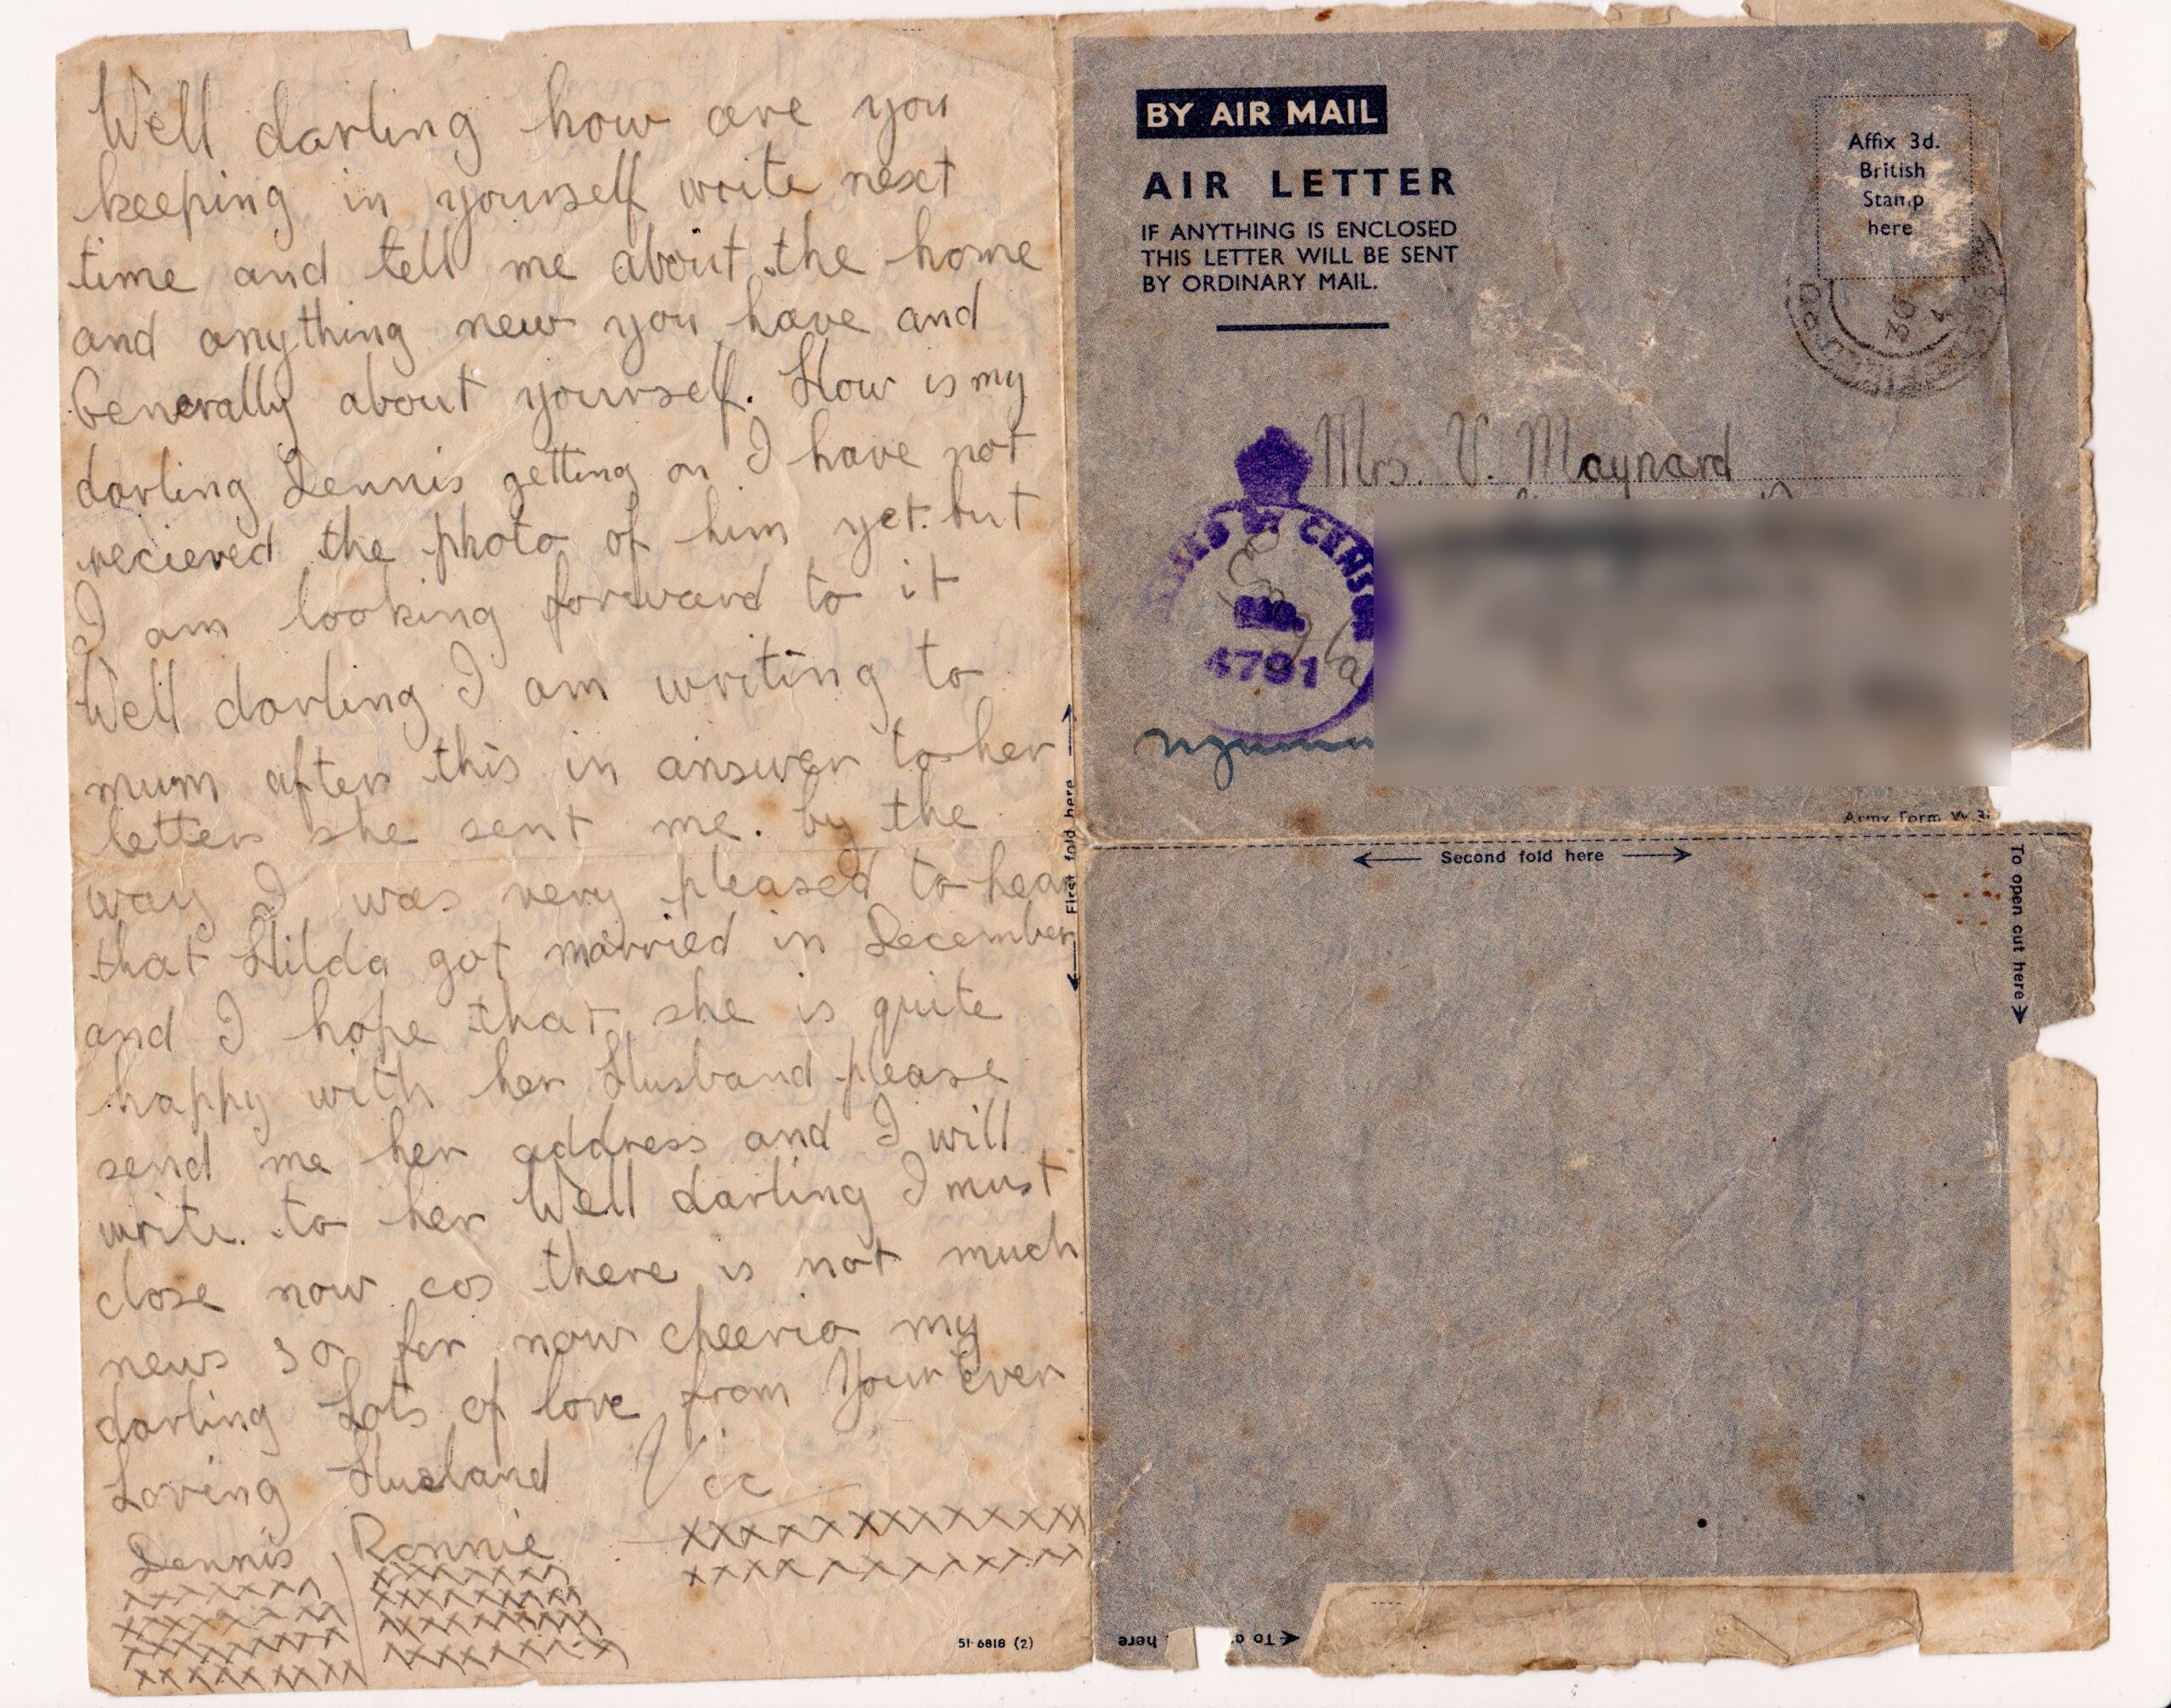 Well darling how are you
keeping in yourself write next
time and tell me about the home
and anything new you have and
Generally about yourself. How is my
darling Dennis getting on I have not
recieved the photo of him yet. but
I am looking forward to it
Well darling I am writing to
mum after this in answer to her
letter she sent me. by the
way I was very pleased to hear
that Hilda got married in December
and I hope that she is quite
happy with her Husband please
send me her address and I will
write. to her Well darling I must
close now cos there is not much
news so for now cheerio my
darling Lots of love from Your Ever
Loving Husband Vic
Dennis Ronnie
51-6818 (2)
First fold here
BY AIR MAIL
AIR LETTER
IF ANYTHING IS ENCLOSED
THIS LETTER WILL BE SENT
BY ORDINARY MAIL.
Affix 3d.
British
Stamp
here
Mrs. V. Maynard
CENSO
4791
Army Form W
Second fold here
To open cut here
here
To